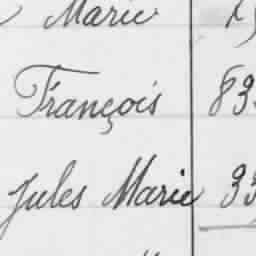 Marie
François 83
Jules Marie 33